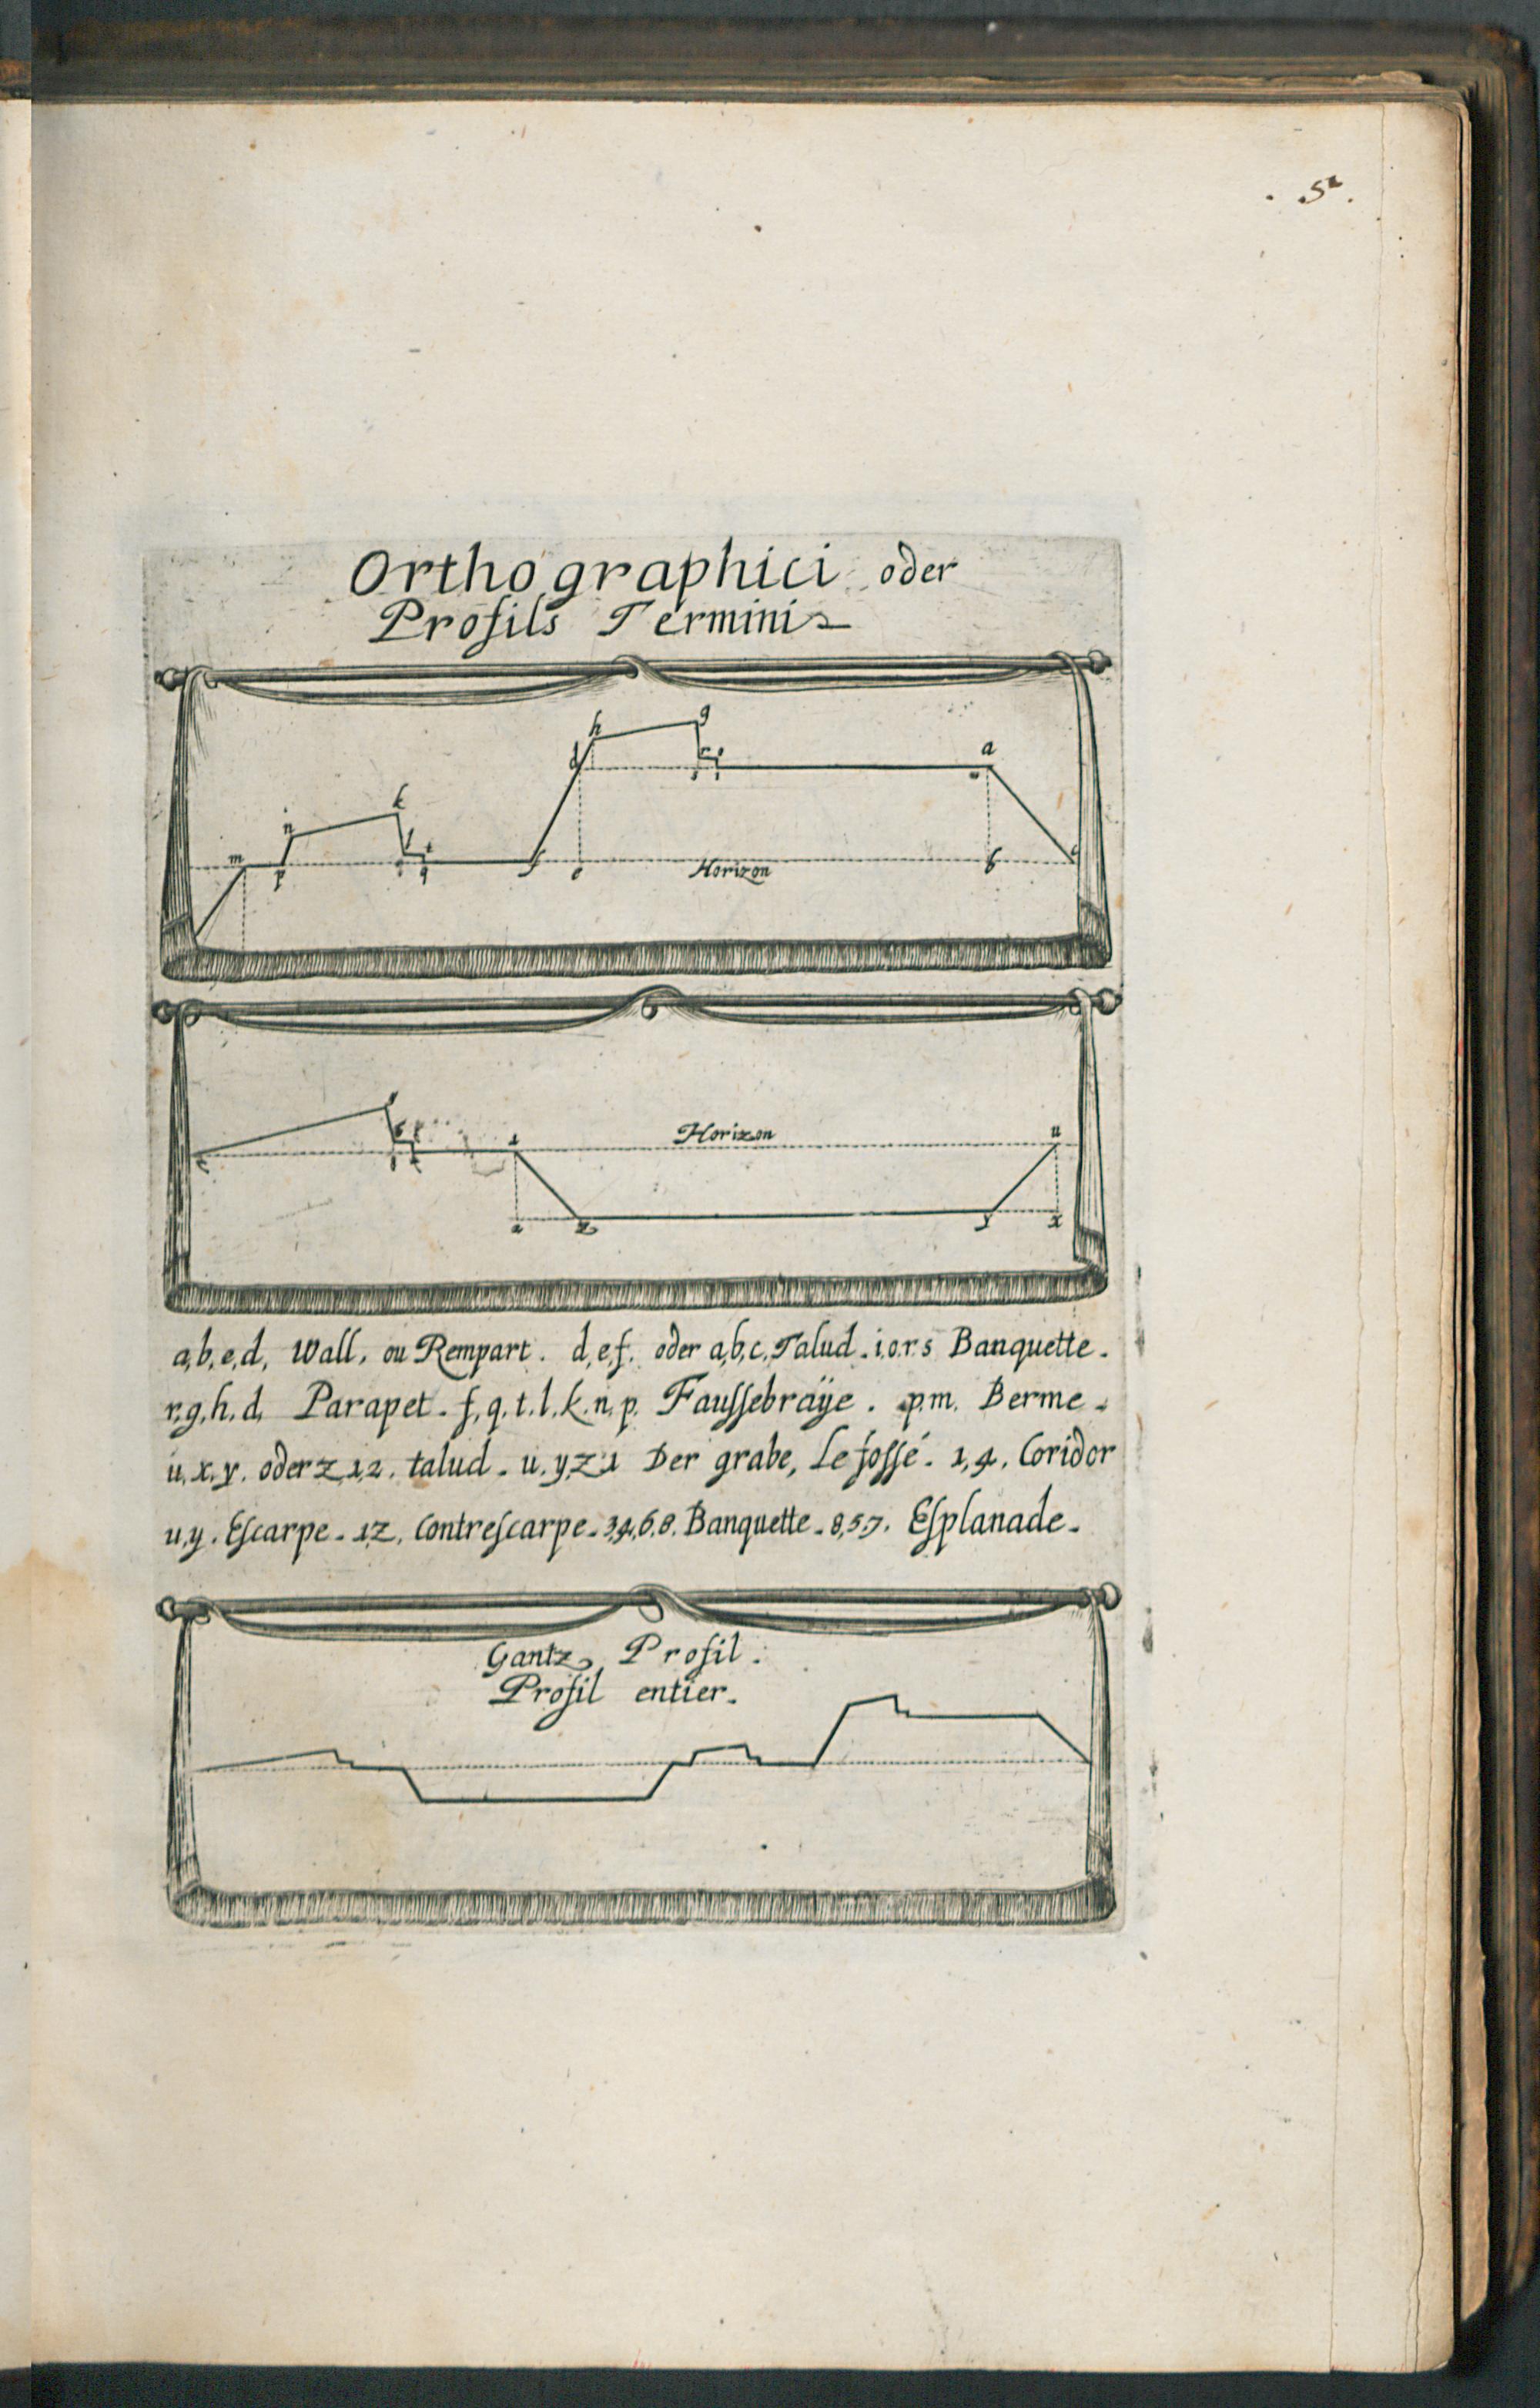 5
Orthographici oder
Profils Termini
h g
d r o a
k
n
m l t
p q f e Horizon b c
5
6 Horizon u
1
7
2 z y x
a,b,e,d, Wall, ou Rempart. d,e,f. oder a,b,c, Talud. i.o.r.s Banquette.
r,g,h.d, Parapet. f,q.t.l.k.n.p. Faussebraÿe. p.m. Berme.
u.x.y. oder z 1,2. talud. u.y,z.1 Der grabe, Le fossé. 1,4. Coridor
u,y. Escarpe. 1z, Contrescarpe. 3,4,6,8. Banquette. 8,5,7. Esplanade.
Gantz Profil.
Profil entier.